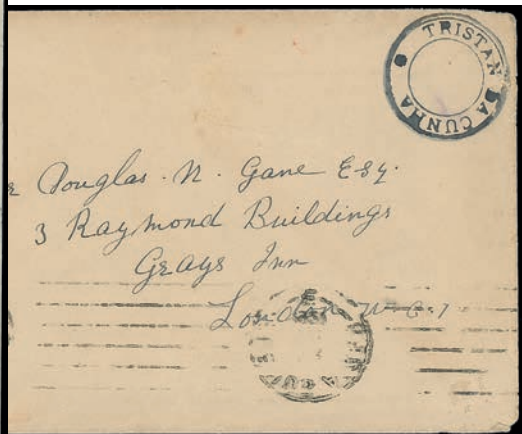 TRISTAN DA CUNHA
Douglas. N. Gane Esq.
3 Raymond Buildings
Grays Inn
London W.C.1